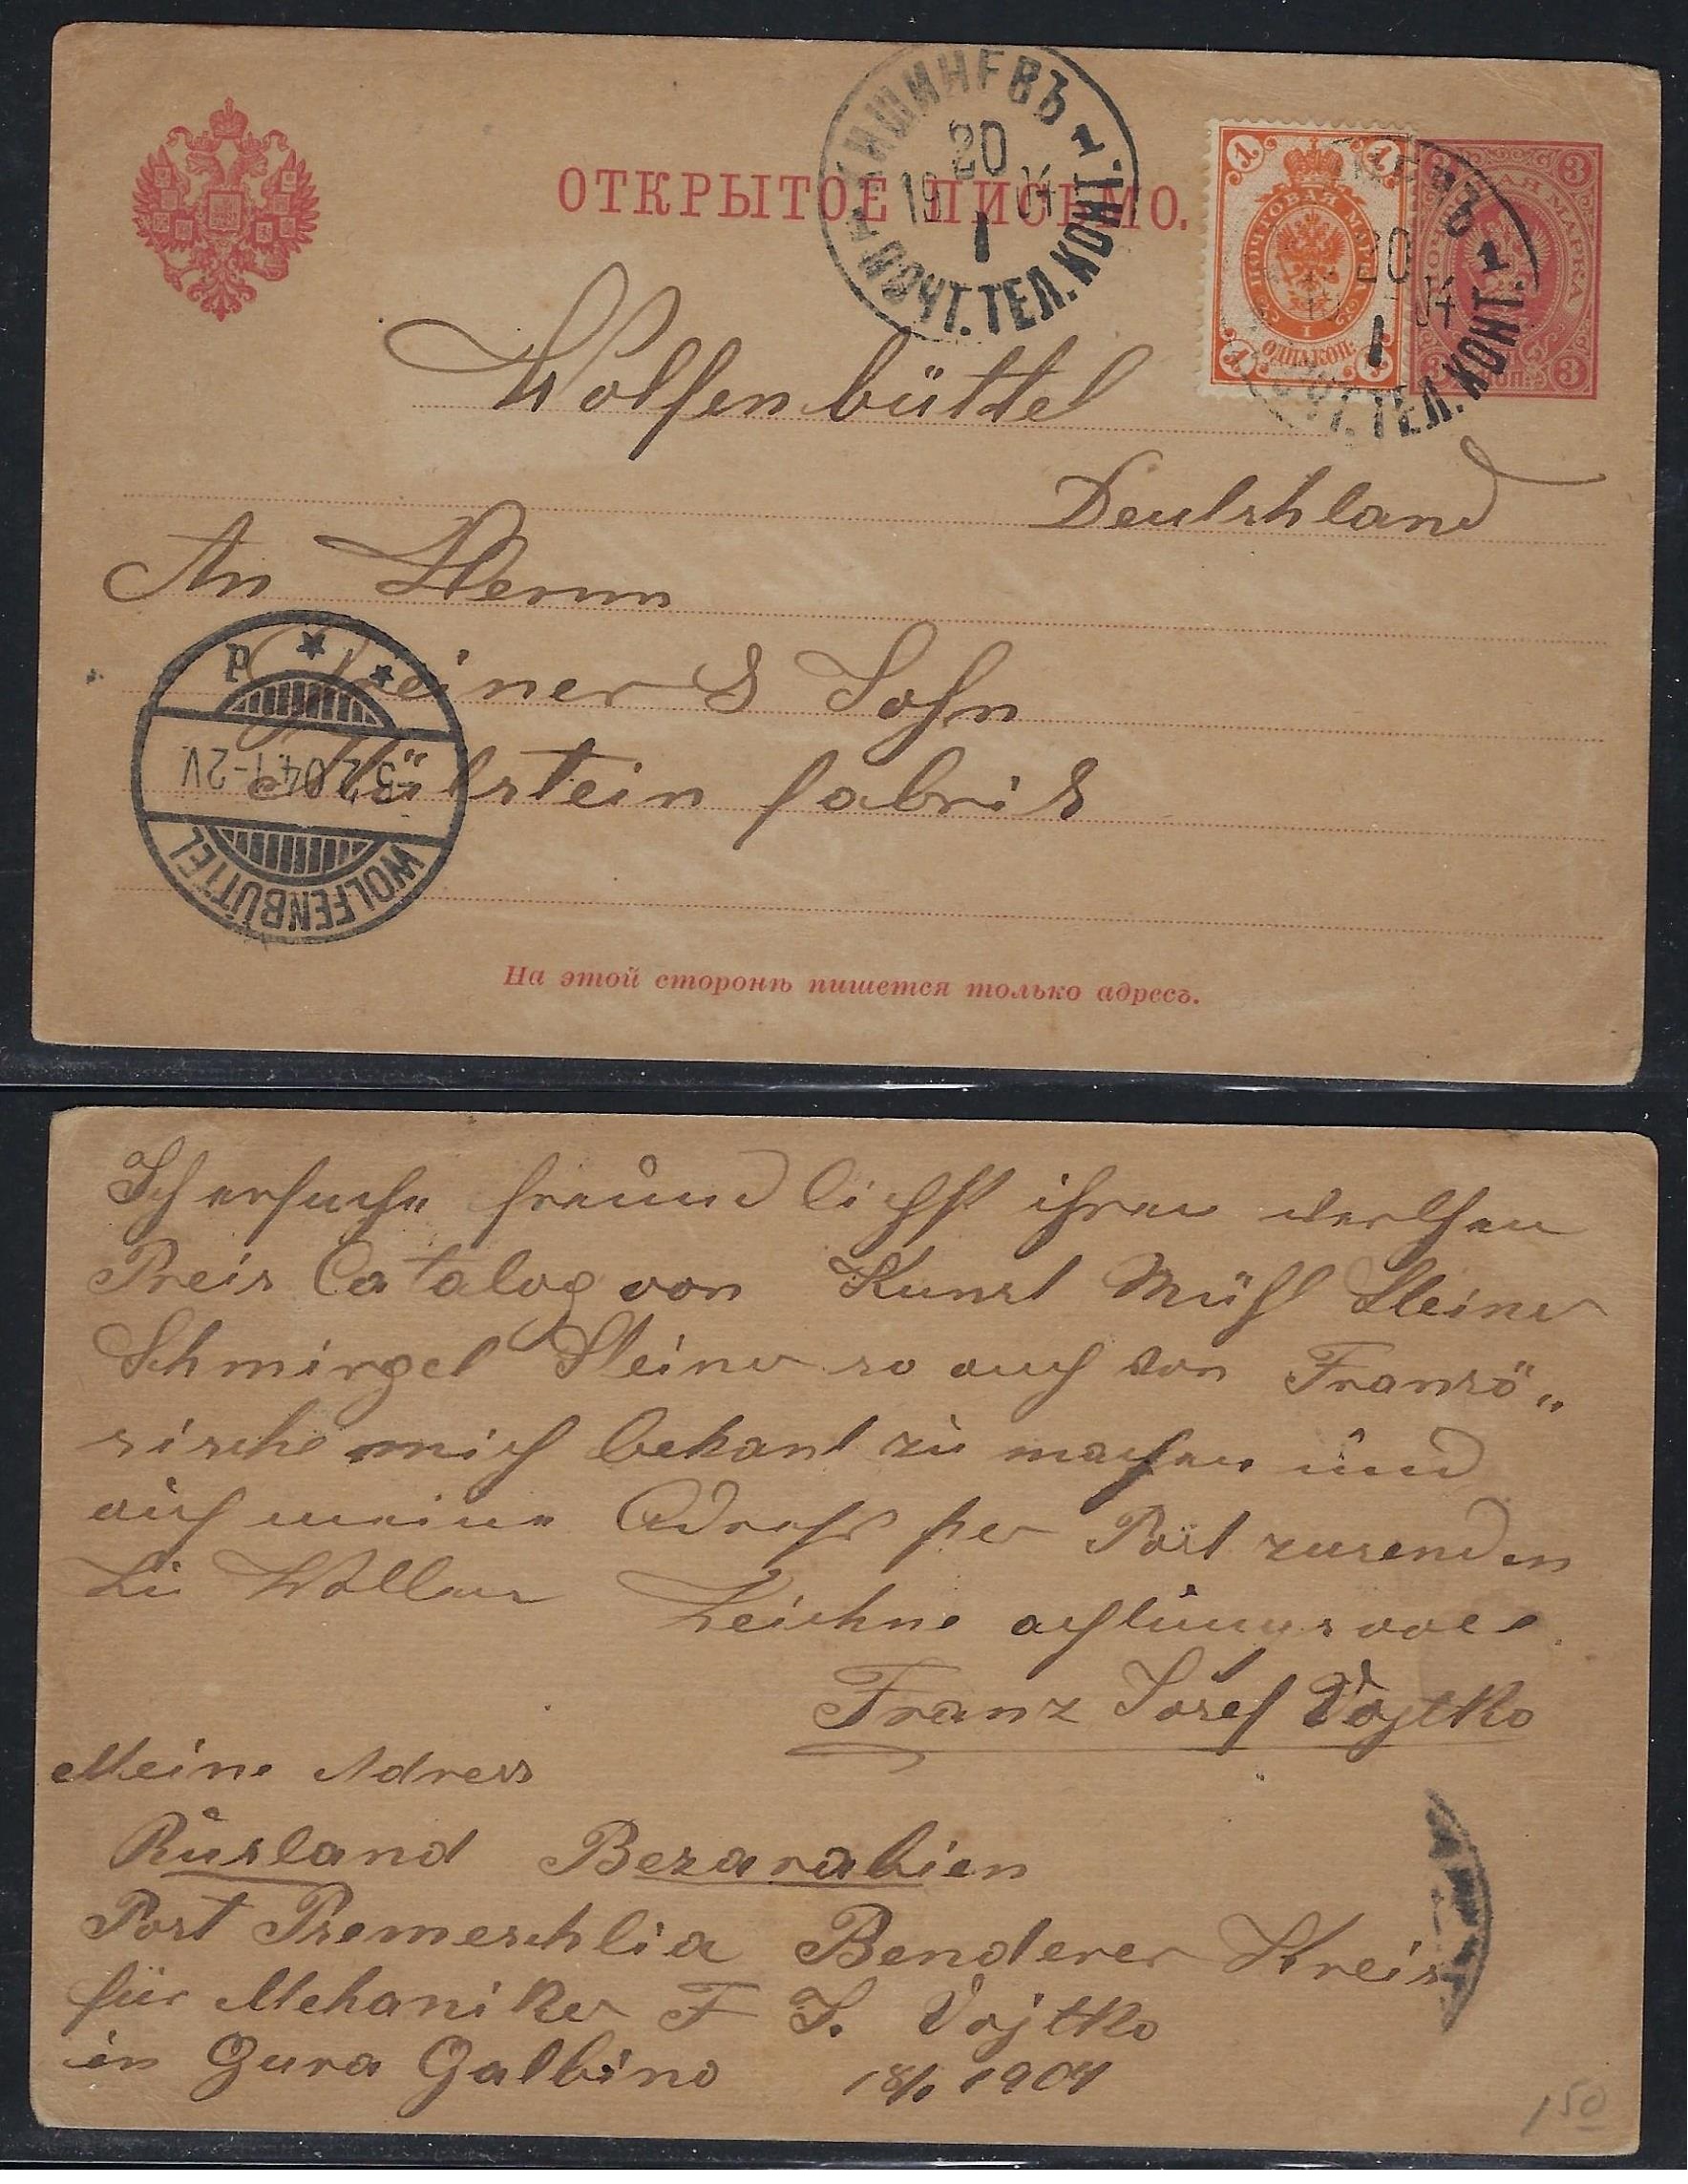 ОТКРЫТОЕ ПИСЬМО.
КИШИНЕВЪ 1
20
19 04
1
ПОЧТ. ТЕЛ. КОНТ.
ПОЧТОВАЯ МАРКА
ОДНА КОП.
3 КОП.
20
1
04
ПОЧТ. ТЕЛ. КОНТ.
Wolfenbüttel
Deutshland
An Herrn
& Sohn
Mülstein fabrik
WOLFENBÜTTEL
3.2.04.1-2V.
На этой сторонѣ пишется только адресъ.
Ich ersuche freundlichst ihren werthen
Preis Catalog von Kunst Mühl Steiner
Schmirgel Steiner so auch von Franzö„
sische mich bekant zu machen und
auf meine Adresse per Post zusenden
zu Wollen Zeichne achtungsvoll
Franz Josef Vojtko
Meine Adress
Rusland Bezarabien
Post Premeschlia Benderer Kreis
für Mehaniker F J. Vojtko
in Gura Galbino 18/1 1904
150